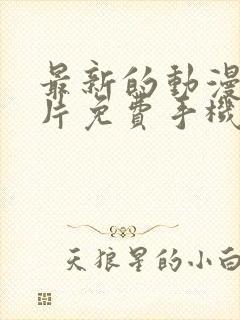 最新的動漫
片免費手機
天狼星的小白